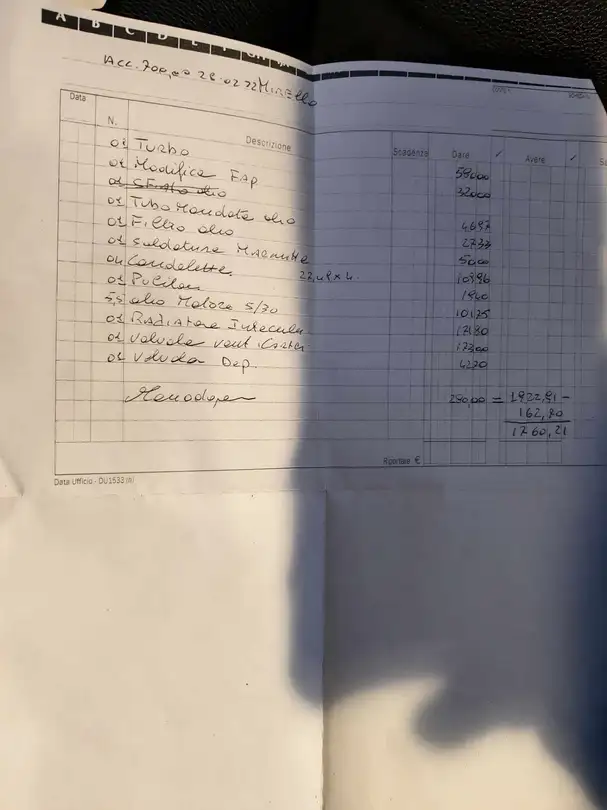 A B C D E F
Acc. 700,00 28-02-22 MIRELLO
Data N. Descrizione Scadenze Dare ✓ Avere ✓
01 Turbo 58000
01 Modifica FAP 32000
01
01 Tubo Mandata olio 4697
01 Filtro olio 2733
01 Saldatura MARMITTA 5000
04 Candelette 22,49 x 4. 10996
01 Pulitore
5,5 olio Motore 5/30 10175
01 RADiatore Intercooler 17180
01 Valvola vent. Carter 17300
01 Valvola Dep. 4270
Manodopera 290,00 = 1922,91 -
162,70
1760,21
Riportare €
Data Ufficio - DU1633